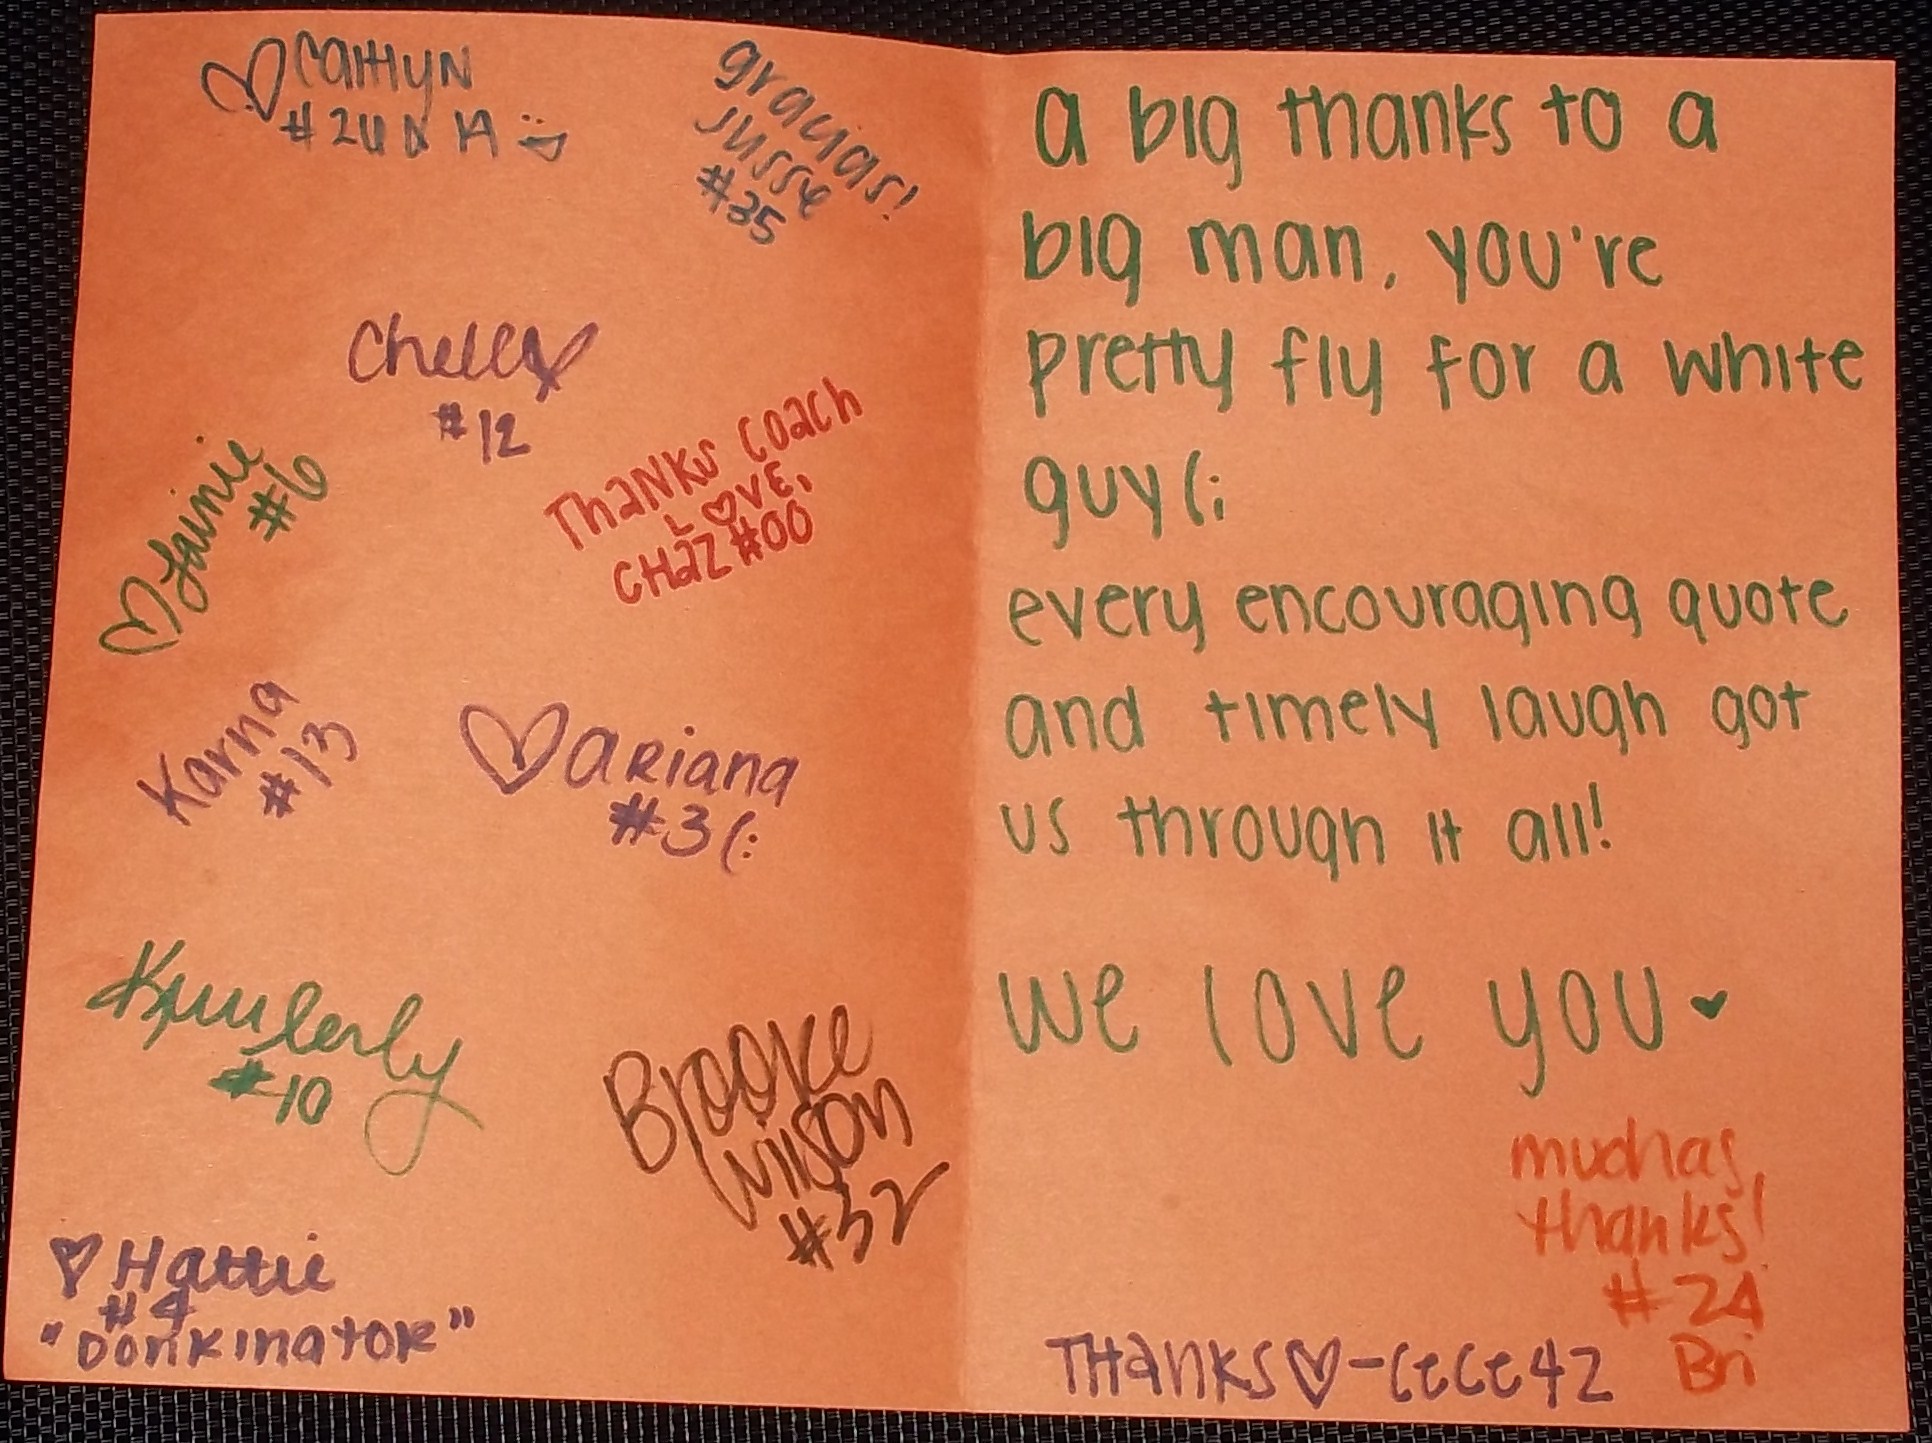 ♡ Caitlyn
gracias!
Jusse
#35
Chells
#12
♡ Lainie
#6
Thanks Coach
Love,
CHaZ #00
Karna
#13
♡ Ariana
#3 (:
Kimberly
#10
Brooke
Wilson
#32
♡ Hattie
#4
"Donkinator"
a big thanks to a
big man, you're
pretty fly for a white
guy (;
every encouraging quote
and timely laugh got
us through it all!
we love you ♥
muchas
thanks!
#24
Bri
THanks ♡ - CeCe 42